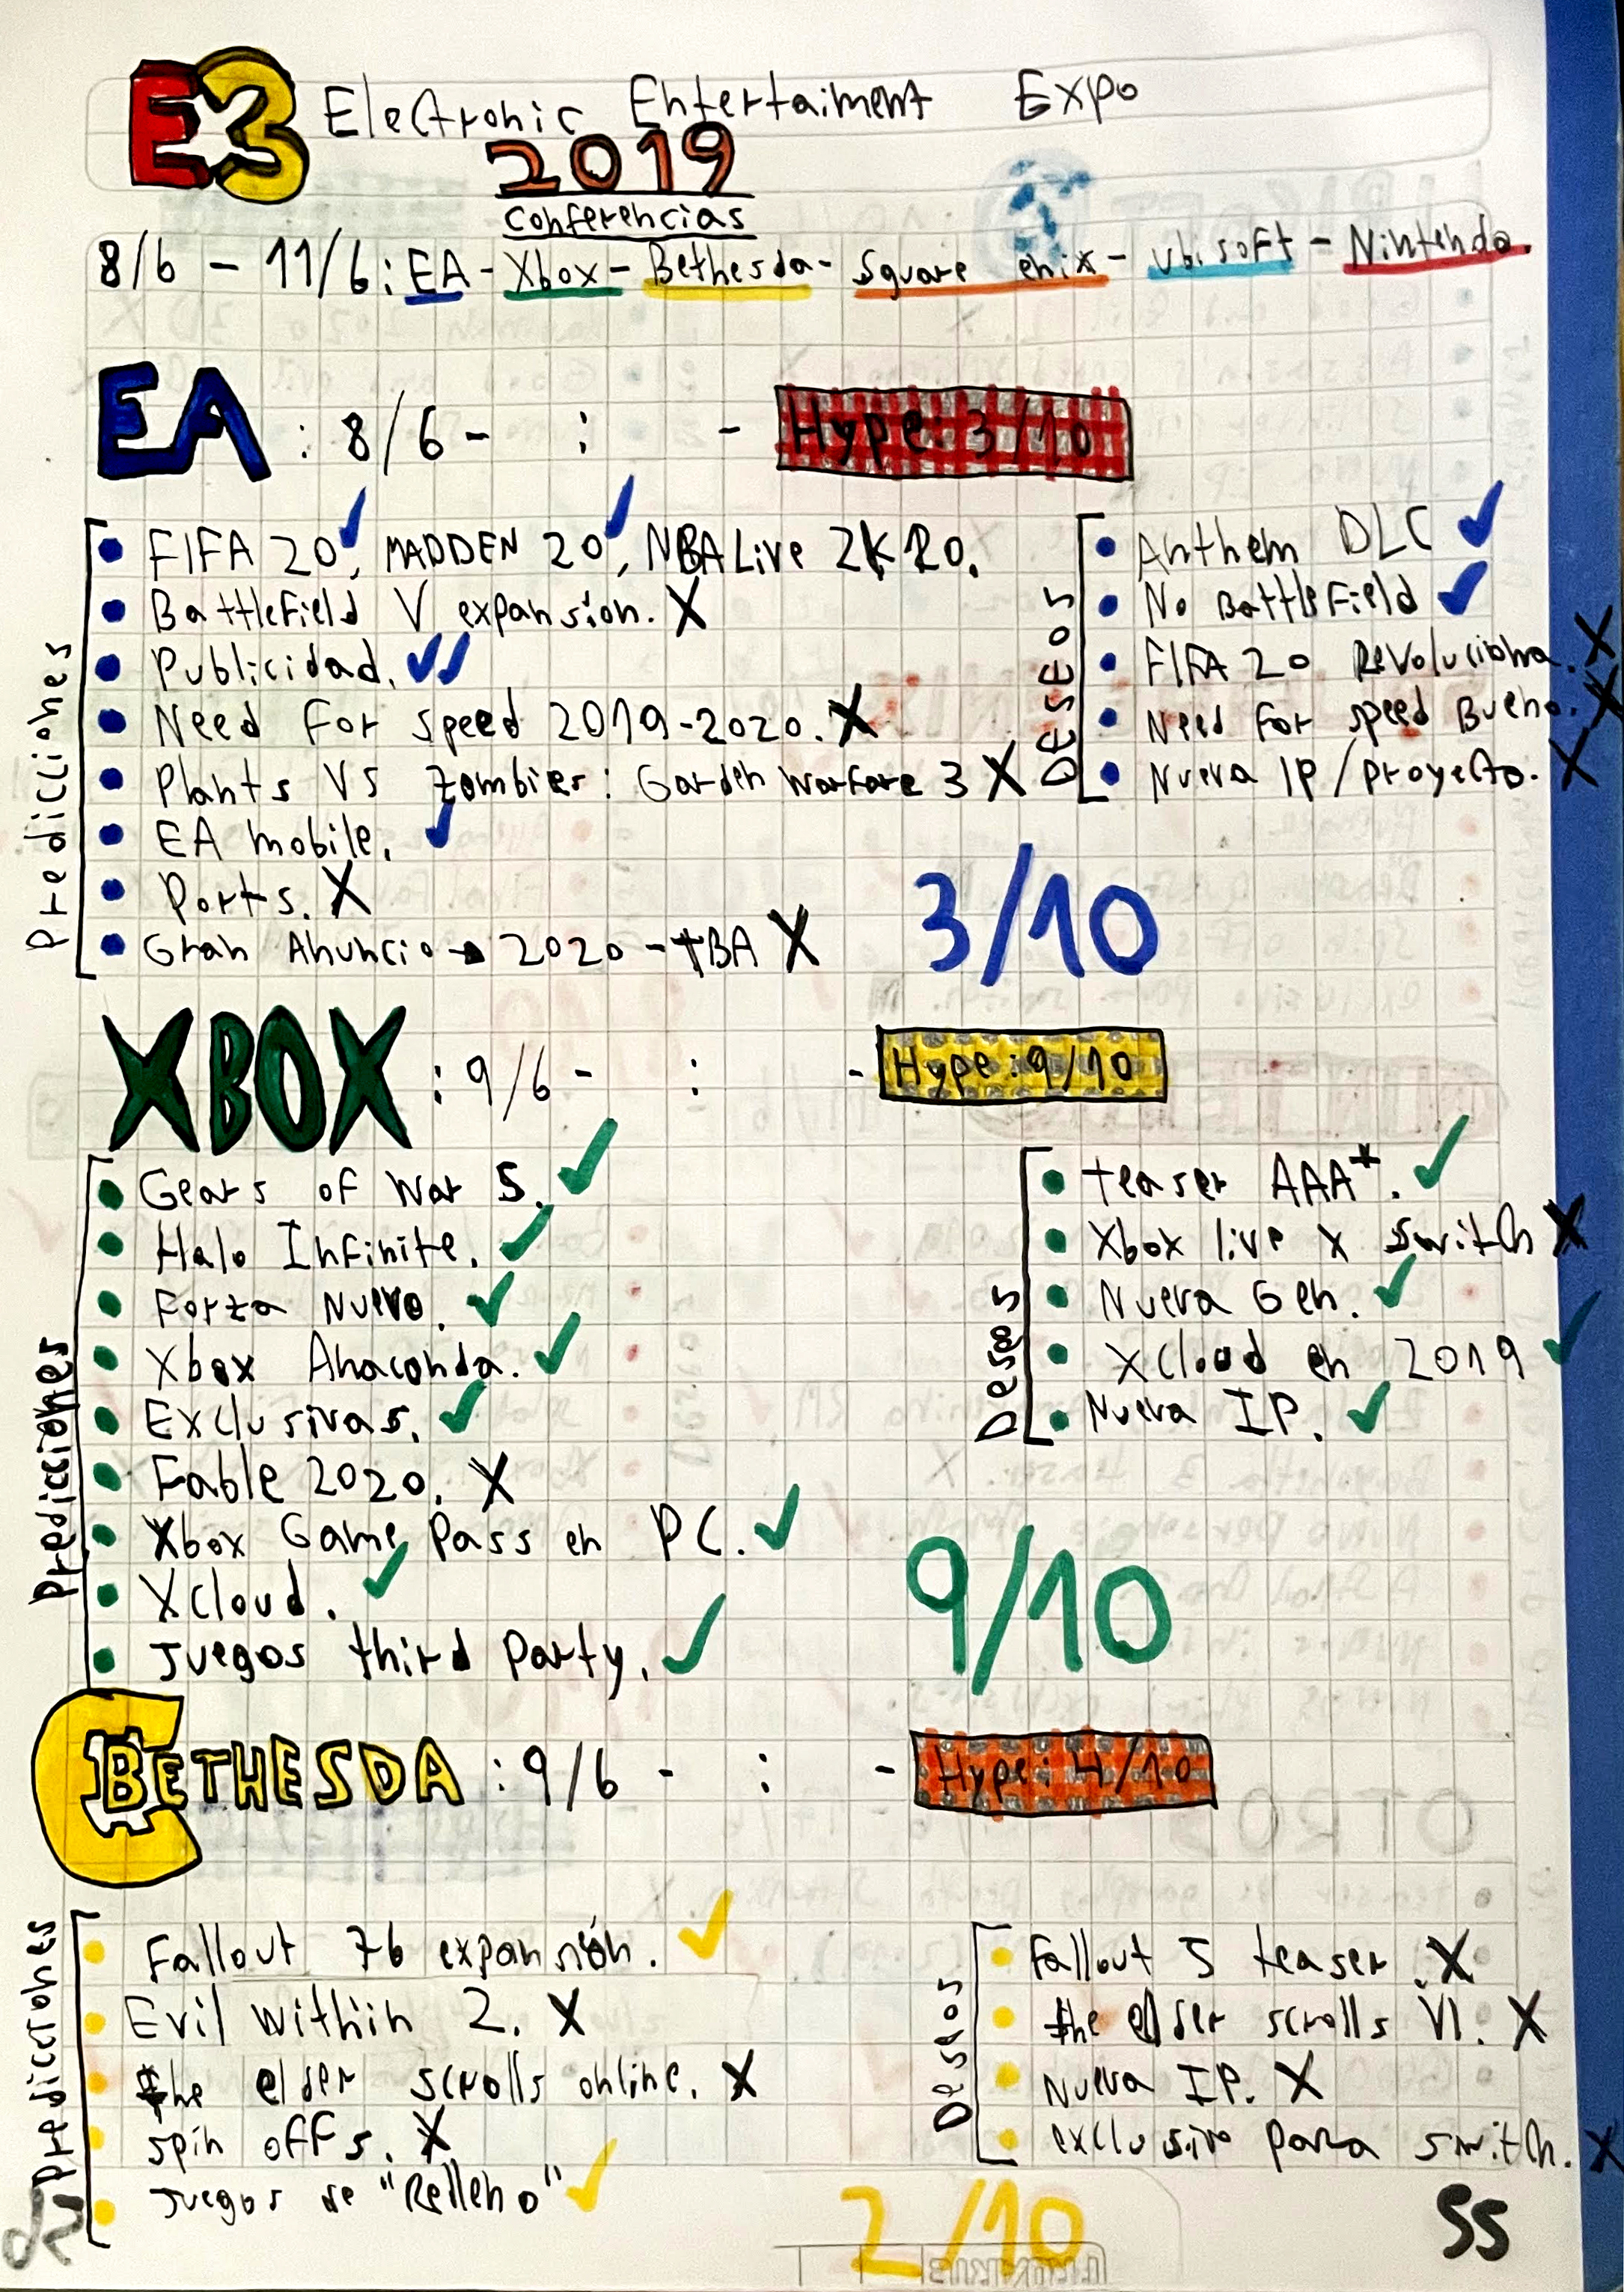 E3 Electronic Entertaiment Expo
2019
Conferencias
8/6 - 11/6: EA - Xbox - Bethesda - Square enix - Ubisoft - Nintendo.
EA : 8/6 - : - Hype: 3/10
Predicciones
• FIFA 20 ✓, MADDEN 20 ✓, NBA Live 2K20.
• Battlefield V expansión. X
• Publicidad. ✓✓
• Need For Speed 2019-2020. X
• Plants Vs Zombies: Garden Warfare 3 X
• EA mobile. ✓
• Ports. X
• Gran Anuncio → 2020 - TBA X
Deseos
• Anthem DLC ✓
• No Battlefield ✓
• FIFA 20 Revoluciona. X
• Need For Speed Bueno. X
• Nueva IP / proyecto. X
3/10
XBOX : 9/6 - : - Hype: 9/10
Predicciones
• Gears of War 5. ✓
• Halo Infinite. ✓
• Forza Nuevo. ✓
• Xbox Anaconda. ✓
• Exclusivas. ✓
• Fable 2020. X
• Xbox Game Pass en PC. ✓
• XCloud. ✓
• Juegos third Party. ✓
Deseos
• teaser AAA*. ✓
• Xbox live x Switch X
• Nueva Gen. ✓
• XCloud en 2019 ✓
• Nueva IP. ✓
9/10
BETHESDA : 9/6 - : - Hype: 4/10
Predicciones
• Fallout 76 expansión. ✓
• Evil within 2. X
• the elder scrolls online. X
• spin offs. X
• Juegos de "Relleno" ✓
Deseos
• Fallout 5 teaser. X
• the elder scrolls VI. X
• Nueva IP. X
• exclusivo para switch. X
2/10
55